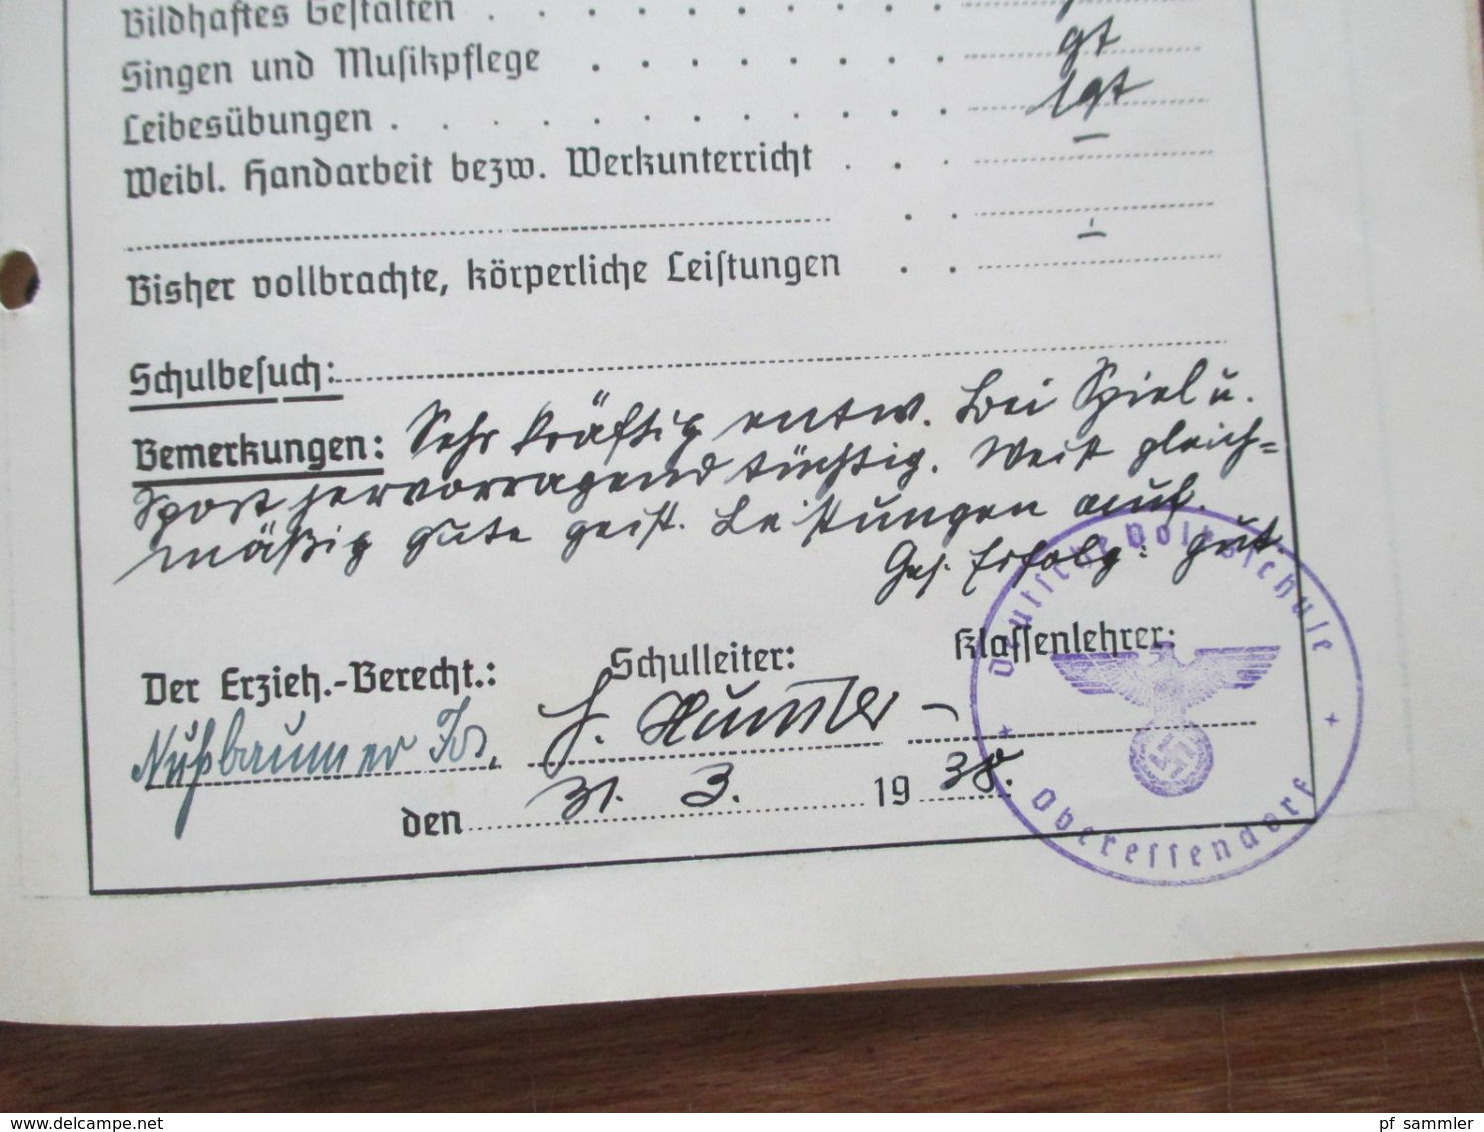 Bildhaftes Gestalten
Singen und Musikpflege gt
Leibesübungen lgt
Weibl. Handarbeit bezw. Werkunterricht —
Bisher vollbrachte, körperliche Leistungen
Schulbesuch:
Bemerkungen: Sehr kräftig entw. Bei Spiel u.
Sport hervorragend tüchtig. Weist gleich=
mäßig gute geist. Leistungen auf.
Ges. Erfolg: gut.
Der Erzieh.-Berecht.: Schulleiter: Klassenlehrer:
Nußbaumer Jos.
den 31. 3. 1938.
Deutsche Volksschule
+ Oberessendorf +
www.delcampe.net
pf_sammler